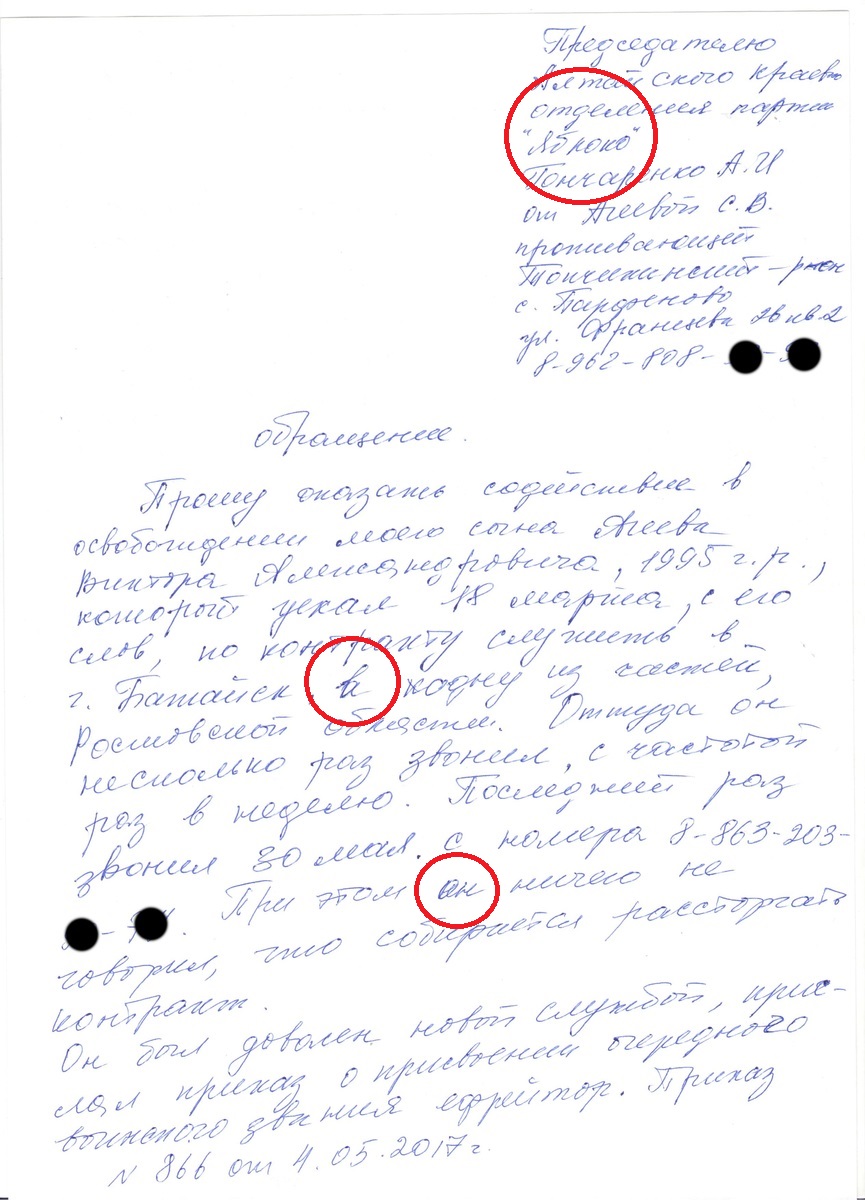 Председателю
Алтайского краево
отделения партии
"Яблоко"
Гончаренко А.И
от Агеевой С.В.
проживающей
Топчихинский-район
с. Парфеново
ул. Францева 26 кв. 2
8-962-808- -
обращение.
Прошу оказать содействие в
освобождении моего сына Агеева
Виктора Александровича, 1995 г.р.,
который уехал 18 марта, с его
слов, по контракту служить в
г. Батайск в одну из частей,
Ростовской области. Оттуда он
несколько раз звонил, с частотой
раз в неделю. Последний раз
звонил 30 мая. с номера 8-863-203-
- . При этом он ничего не
говорил, что собирается расторгать
контракт.
Он был доволен новой службой, прис-
лал приказ о присвоении очередного
воинского звания ефрейтор. Приказ
N 866 от 4.05.2017 г.